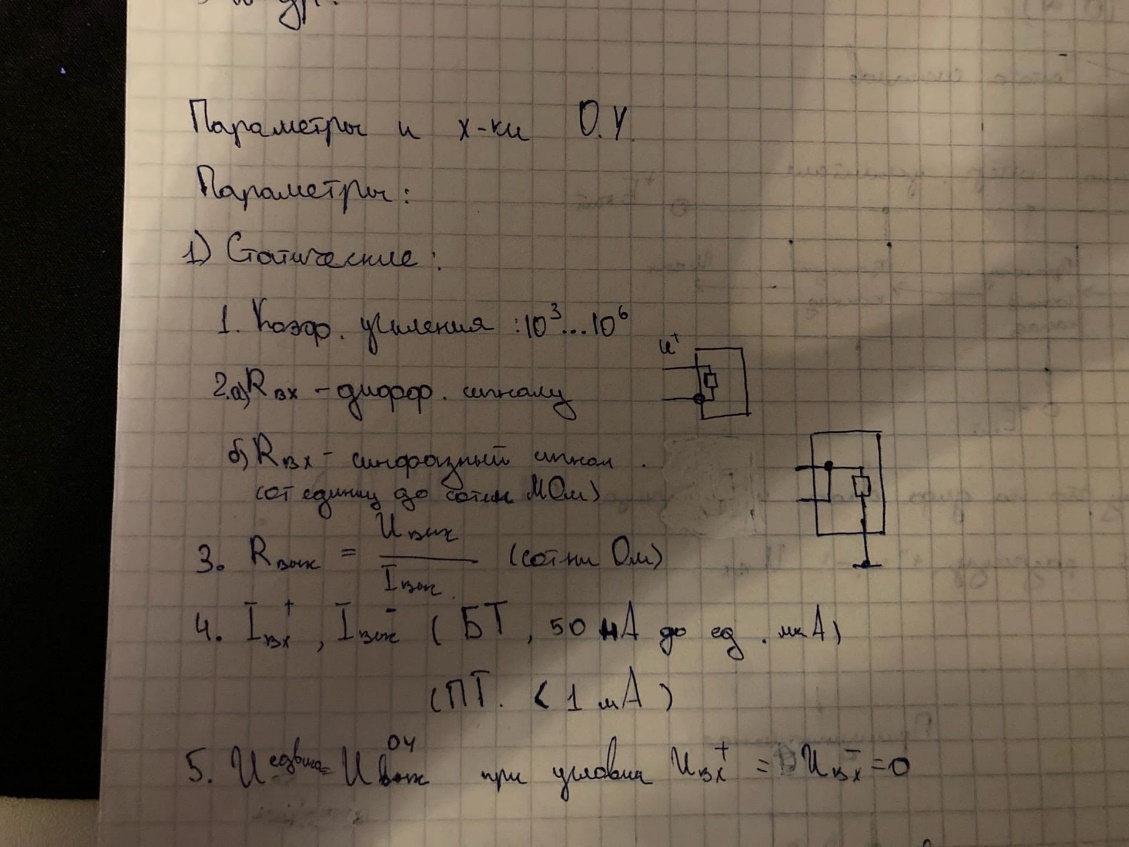 Параметры и х-ки О.У.
Параметры:
1) Статические:
1. Коэф. усиления : 10³...10⁶
2.а) Rвх - дифф. сигналу
u⁺
б) Rвх - синфазный сигнал.
(от единиц до сотен МОм)
3. Rвых = Uвых / Iвых. (сотни Ом)
4. Iвх⁺, Iвых⁻ (БТ, 50 нА до ед. мкА)
(ПТ. < 1 мА)
5. Uсдвига = Uвых ОУ при условиа Uвх⁺ = Uвх⁻ = 0